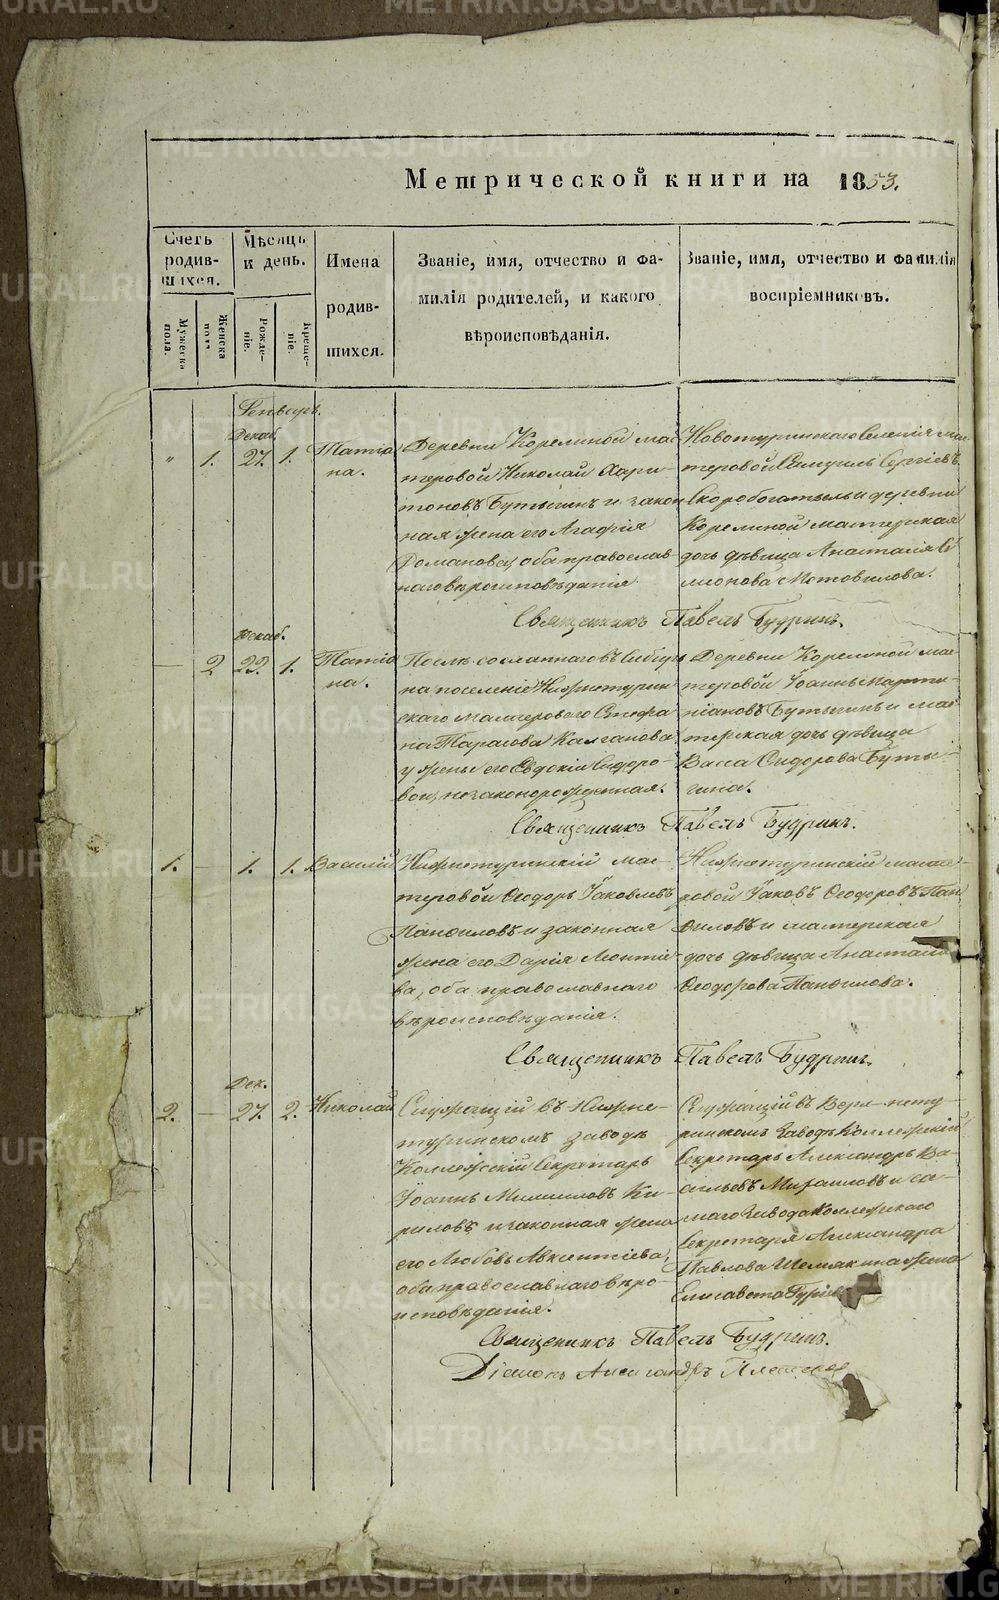 Метрической книги на 1853.
Счетъ родившихся.
Мѣсяцъ и день.
Имена родившихся.
Званіе, имя, отчество и фамилія родителей, и какого вѣроисповѣданія.
Званіе, имя, отчество и фамилія воспріемниковъ.
Мужеска пола.
Женска пола.
Рожденіе.
Крещеніе.
Генварь.
Декаб.
" 1. 27. 1. Татіана.
Деревни Корелиной мас
теровой Николай Хари
тоновъ Бутыгинъ и закон
ная жена его Агафія
Романова, оба православ
наго вѣроисповѣданія
Новотуринскаго селенія мас
теровой Самуилъ Сергіевъ
Скоробогатыхъ и деревни
Корелиной мастерская
дочь дѣвица Анастасія Си
меонова Мотовилова.
Священникъ Павелъ Будринъ.
Декаб.
— 2 22. 1. Татіана.
Послѣ сосланнаго въ Сибирь
на поселеніе Нижнетурин
скаго мастероваго Стефа
на Тарасова Калганова
у жены его Евдокіи Сидоро-
вой, незаконорожденная.
Деревни Корелиной мас-
теровой Іоаннъ Марти-
ніановъ Бутыгинъ и мас
терская дочь дѣвица
Васса Сидорова Буты-
гина.
Священникъ Павелъ Будринъ.
1. — 1. 1. Василій
Нижнетуринскій мас-
теровой Ѳеодоръ Іаковлевъ
Панфиловъ и законная
жена его Дарія Леонтіе
ва, оба православнаго
вѣроисповѣданія.
Нижнетуринскій масте-
ровой Іаковъ Ѳеодоровъ Пан
филовъ и мастерская
дочь дѣвица Анастасія
Ѳеодорова Панфилова.
Священникъ Павелъ Будринъ.
Дек.
2. — 27. 2. Николай
Служащій въ Нижне-
туринскомъ заводѣ
Коллежскій Секретарь
Іоаннъ Михаиловъ Ки-
риловъ и законная жена
его Любовь Авксентіева,
оба православнаго вѣро-
исповѣданія.
Служащій въ Верхнету-
ринскомъ заводѣ Коллежскій
Секретарь Александръ Ва-
сильевъ и са-
маго завода Коллежскаго
Секретаря Александра
Павлова Шемякина жена
Елисавета
Священникъ Павелъ Будринъ.
Діаконъ Александръ
METRIKI.GASO-URAL.RU